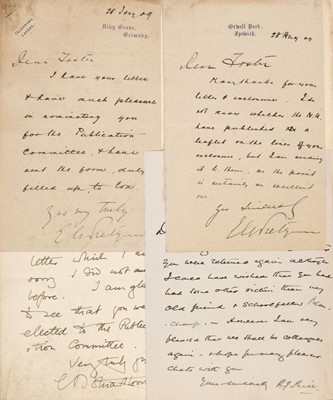 28 Jany 09
TELEGRAMS
Riby Grove,
Grimsby.
Dear Foster
I have your letter
& have much pleasure
in nominating you
for the Publication
Committee, & have
sent the form, duly
filled up, to Cox
Yrs very truly
Orwell Park,
Ipswich.
28 Aug 09
Dear Foster
Many thanks for your
letter & enclosure. I do
not know whether the N.U.
have published as a
leaflet on the lines of your
enclosure, but I am sending
it to them, as the point
is certainly an excellent
one.
Yrs sincerely
letter which I am
sorry I did not
before. I am glad
to see that you were
elected to the Public-
ation Committee.
Very truly yours
You were returned again although
I could have wished that you had
had some other victim than my
old friend & schoolfellow
However I am very
pleased that we shall be colleagues
again & hope for many pleasant
chats with you
Yours sincerely